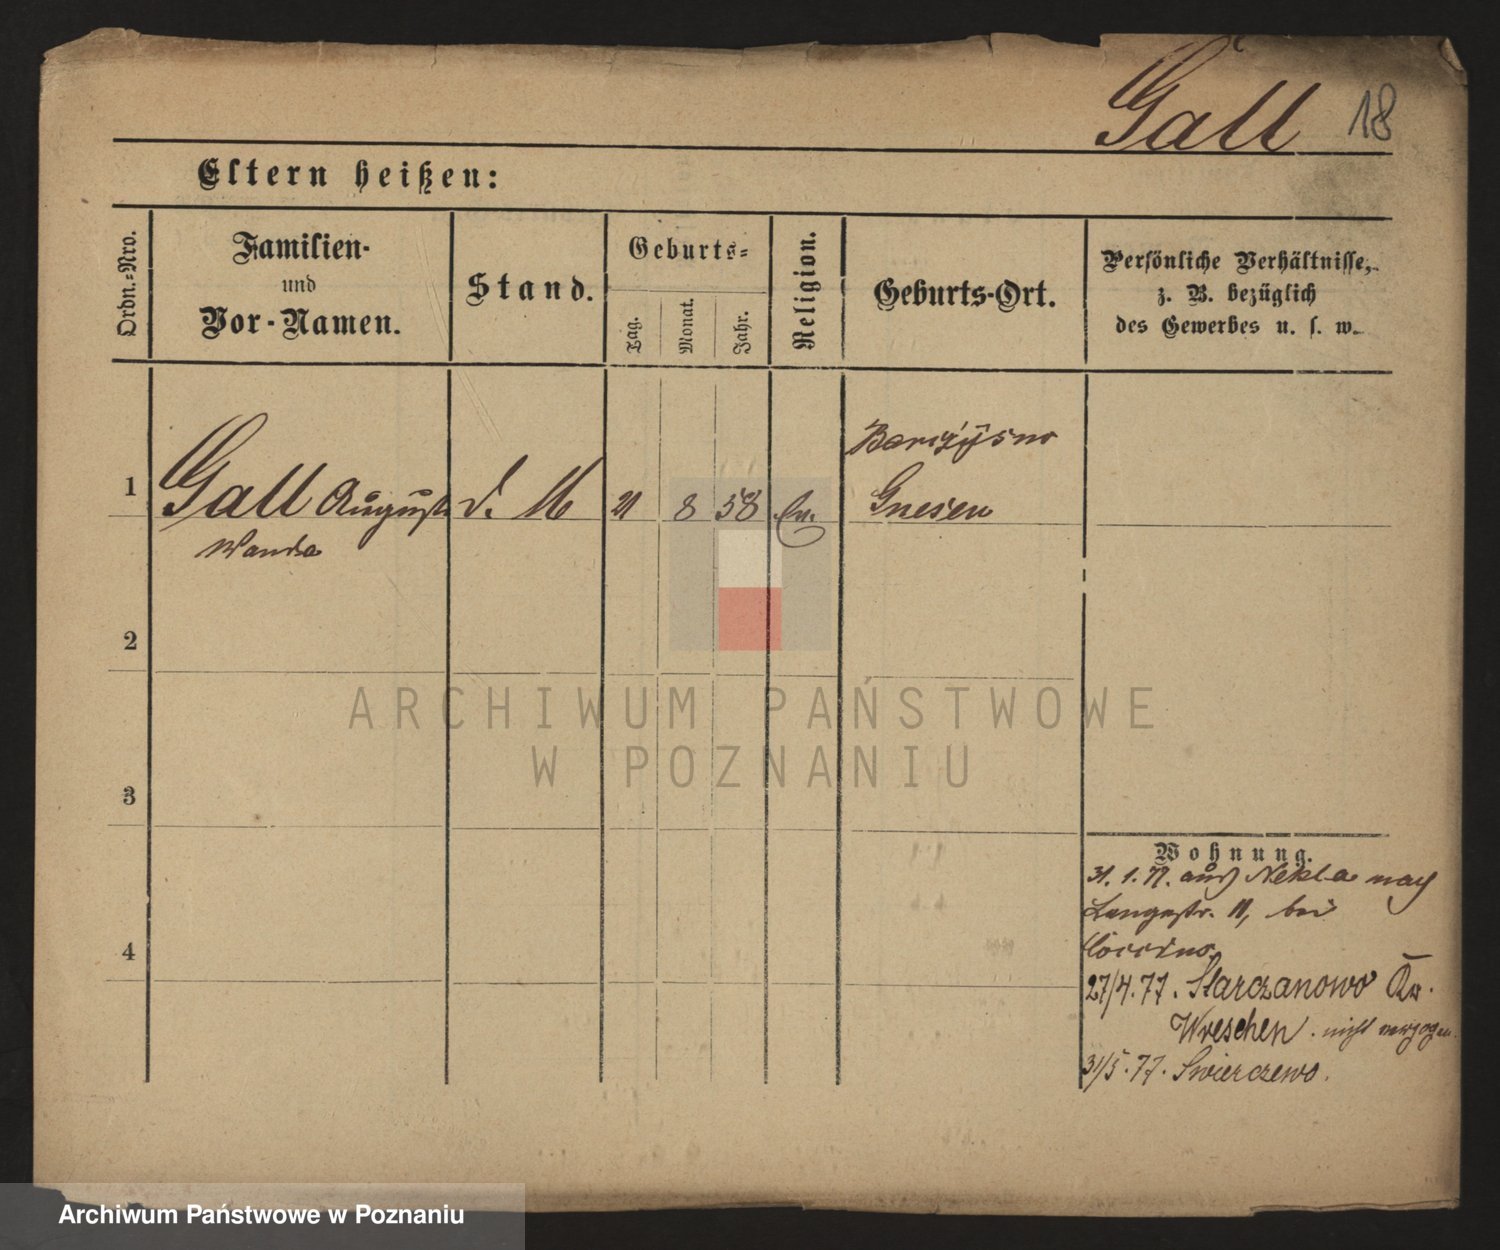 Gall 18
Eltern heißen:
Ordn.-Nro.
Familien-
und
Vor-Namen.
Stand.
Geburts-
Tag.
Monat.
Jahr.
Religion.
Geburts-Ort.
Persönliche Verhältnisse,
z. B. bezüglich
des Gewerbes u. s. w.
1 Gall August d. M 21 8 58 Gnesen
Wanda
2
3
4
Wohnung.
31. 1. 77. aus Nekla nach
Langestr. 11, bei
27/4.77. Starczanowo Kr.
Wreschen. nicht verzogen.
31/5.77. Swierczewo.
ARCHIWUM PAŃSTWOWE
W POZNANIU
Archiwum Państwowe w Poznaniu